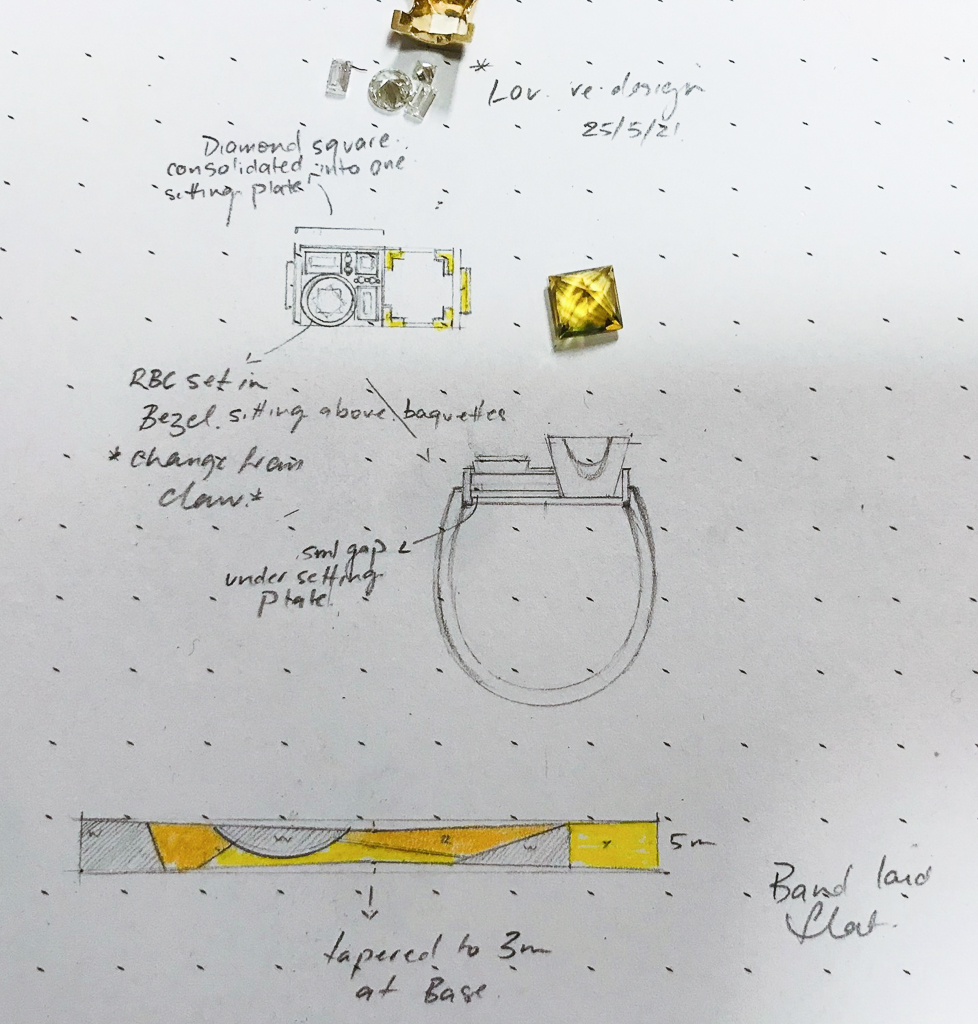 * Lou. re-design
25/5/21
Diamond square
consolidated into one
setting plate
RBC set in
Bezel. sitting above baguettes
* change from
claw. *
sml gap
under setting
plate.
W
W
R
W
Y
5m
Band laid
flat.
tapered to 3m
at Base.